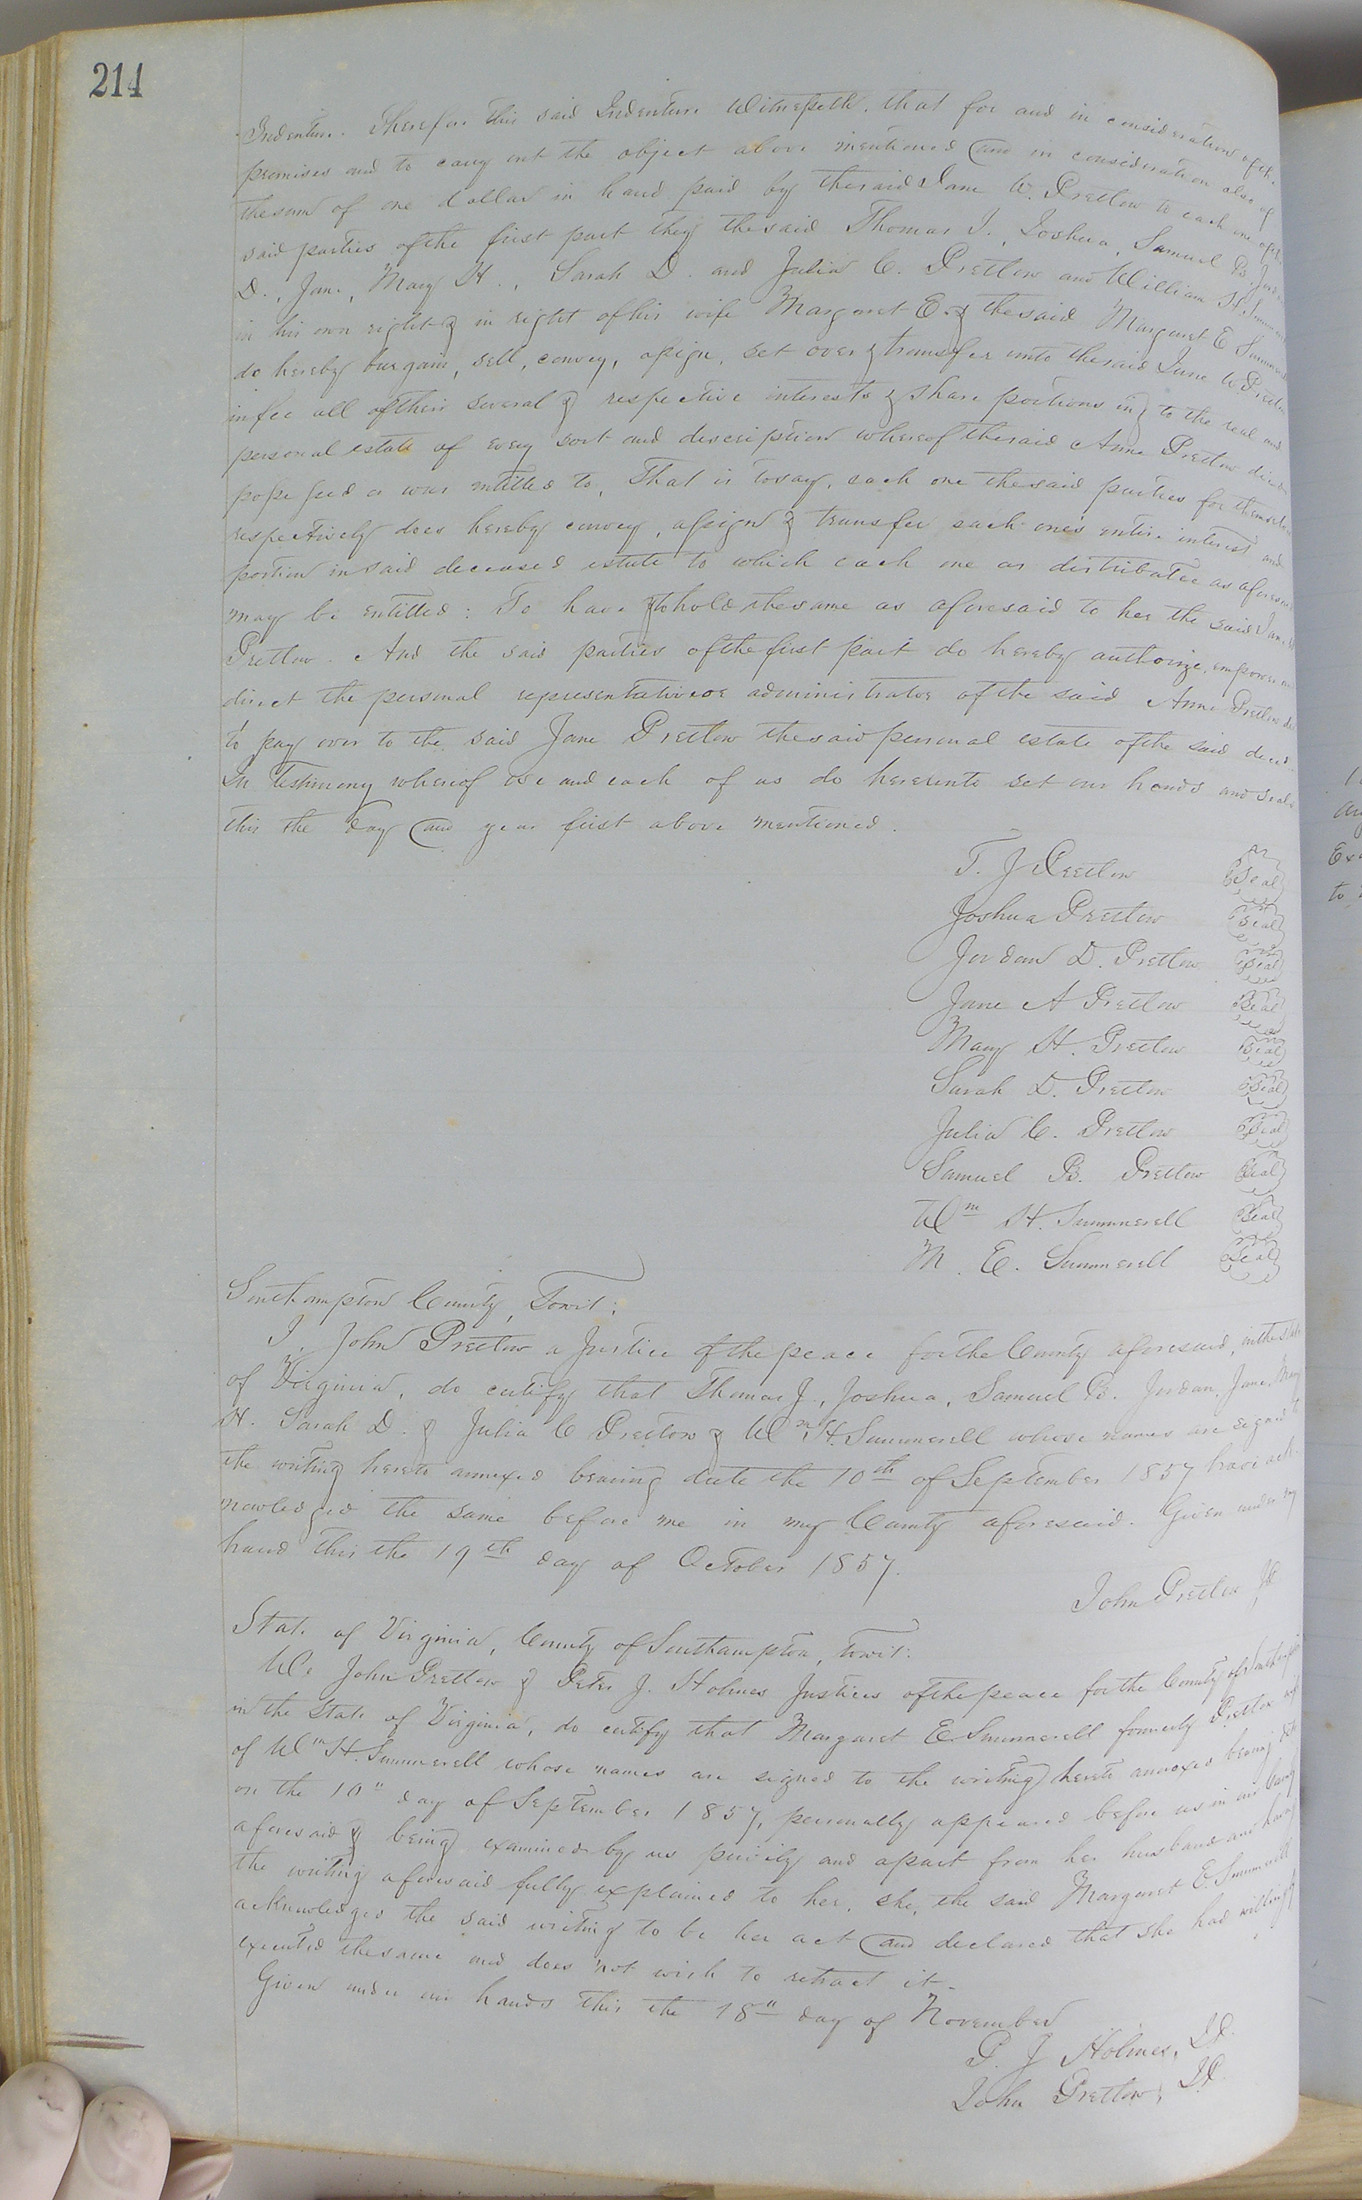 214
Indenture. Therefore this said Indenture Witnesseth, that for and in consideration of the
premises and to carry out the object above mentioned and in consideration also of
the sum of one dollar in hand paid by the said Jane W. Pretlow to each one of the
said parties of the first part they the said Thomas J., Joshua, Samuel B,
D., Jane, Mary H., Sarah D. and Julia C. Pretlow and William H.
in his own right & in right of his wife Margaret E. & the said Margaret E
do hereby bargain, sell, convey, assign, set over & transfer unto the said Jane W. Pretlow
in fee all of their several & respective interests & share portions in & to the real and
personal estate of every sort and description whereof the said Anne Pretlow
possessed or was entitled to, That is to say, each one the said parties for themselves
respectively does hereby convey, assign & transfer each one's entire interest and
portion in said deceased estate to which each one as distributee as aforesaid
may be entitled: To have & to hold the same as aforesaid to her the said Jane
Pretlow. And the said parties of the first part do hereby authorize, empower and
direct the personal representative or administrator of the said Anne Pretlow
to pay over to the said Jane Pretlow the said personal estate of the said decd.
In testimony whereof we and each of us do hereunto set our hands and seals
this the day and year first above mentioned.
T. J Pretlow Seal
Joshua Pretlow Seal
Jordan D. Pretlow Seal
Jane A Pretlow Seal
Mary H. Pretlow Seal
Sarah D. Pretlow Seal
Julia C. Pretlow Seal
Samuel B. Pretlow Seal
Wm H. Summerell Seal
M. E. Summerell Seal
Southampton County, Towit:
I, John Pretlow a Justice of the peace for the County aforesaid, in the State
of Virginia, do certify that Thomas J., Joshua, Samuel B. Jordan, Jane, Mary
H. Sarah D. & Julia C Pretlow & Wm H. Summerell whose names are signed to
the writing hereto annexed bearing date the 10th of September 1857 have ack-
nowledged the same before me in my County aforesaid. Given under my
hand this the 19th day of October 1857.
John Pretlow JP
State of Virginia, County of Southampton, towit:
We John Pretlow & Peter J. Holmes Justices of the peace for the County of Southampton
in the State of Virginia, do certify that Margaret E Summerell formerly Pretlow wife
of Wm H. Summerell whose names are signed to the writing hereto annexed bearing date
on the 10" day of September 1857, personally appeared before us in our County
aforesaid & being examined by us privily and apart from her husband and having
the writing aforesaid fully explained to her, she, the said Margaret E. Summerell
acknowledged the said writing to be her act and declared that she had willingly
executed the same and does not wish to retract it.
Given under our hands this the 18" day of November
P. J Holmes, J.P.
John Pretlow, J.P.